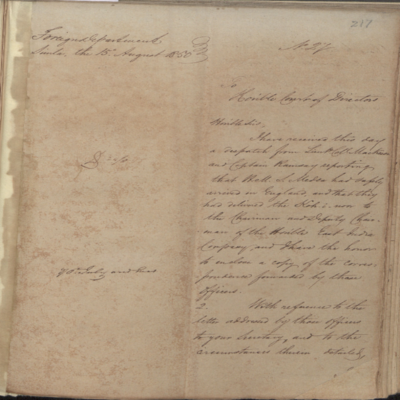 217
Foreign Department
Simla the 15 August 1850
To
Honble Court of Directors
Honble Sirs
I have received this day
a despatch from Lieut Col Mackeson
and Captain Ramsay reporting
that H.M.S. Medea had safely
arrived in England and that they
had delivered the Koh i noor to
the Chairman and Deputy Chair
man of the Honble East India
Company and I have the honor
to enclose a copy of the corres
pondence forwarded by these
officers.
2. With reference to the
letter addressed by these officers
to your Secretary, and to the
circumstances therein detailed,